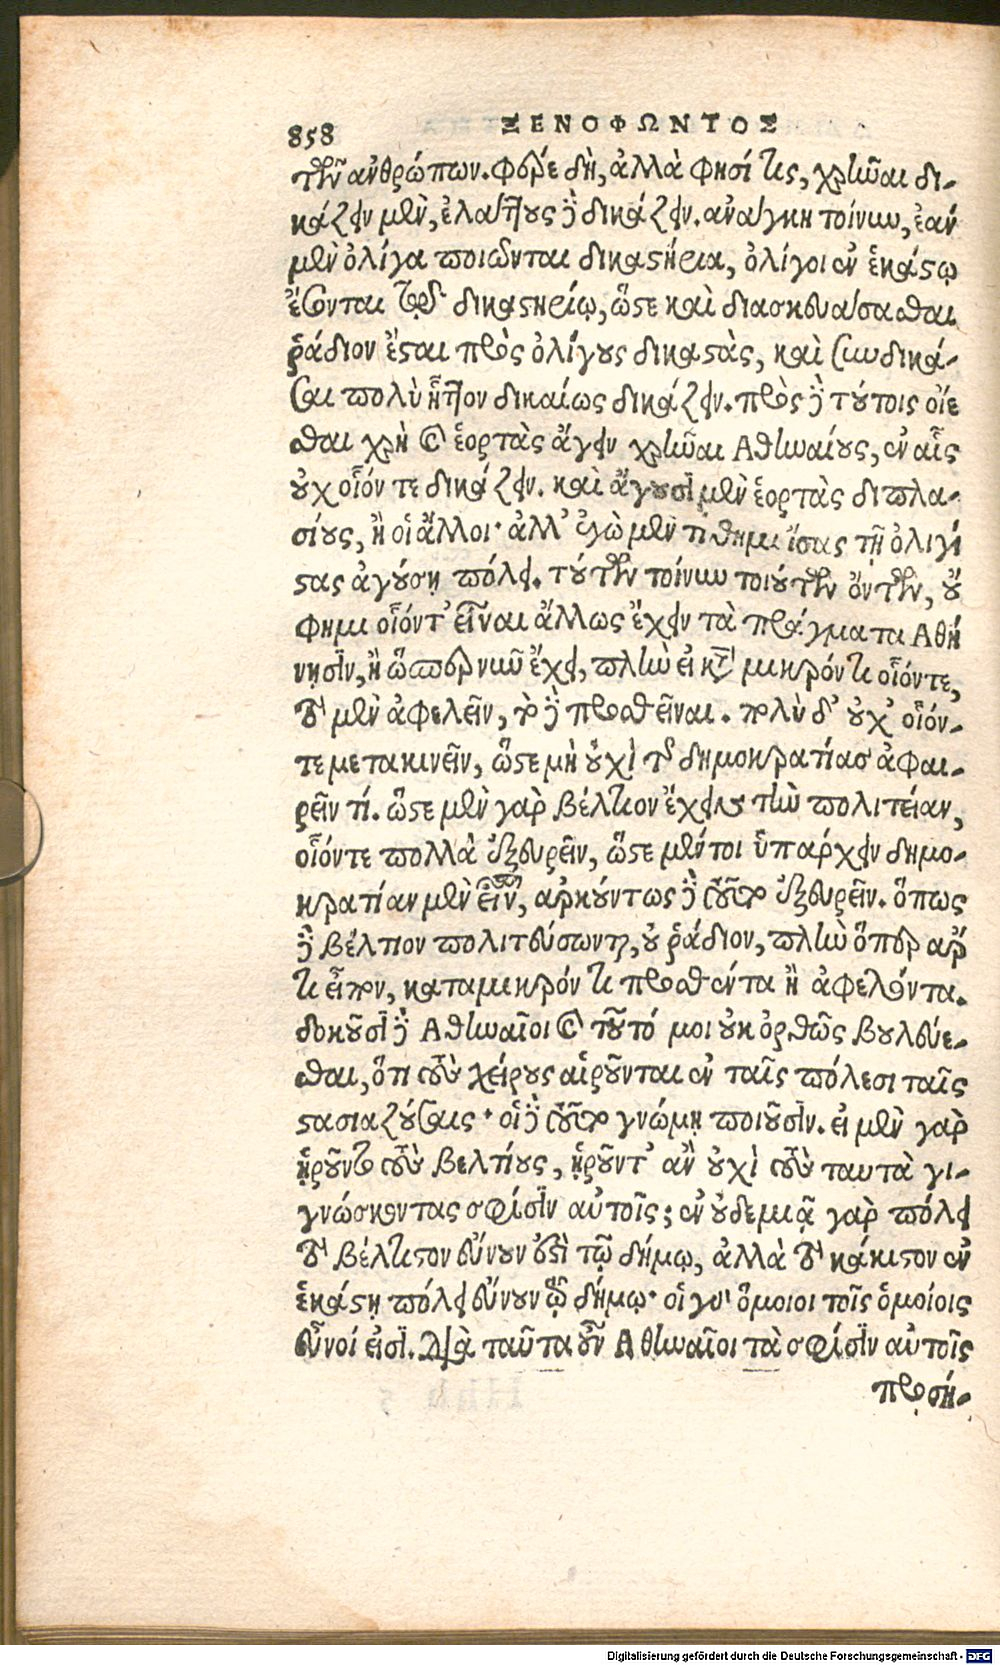 858 ΞΕΝΟΦΩΝΤΟΣ
τῶν ἀνθρώπων. φέρε δὴ, ἀλλὰ φησί τις, χρῆναι δι-
κάζειν μὲν, ἐλάττους δὲ δικάζειν. ἀνάγκη τοίνυν, ἐὰν
μὲν ὀλίγα ποιῶνται δικαστήρια, ὀλίγοι ἐν ἑκάστῳ
ἔσονται τῷ δικαστηρίῳ, ὥστε καὶ διασκευάσασθαι
ῥάδιον ἔσται πρὸς ὀλίγους δικαστὰς, καὶ συνδικά-
σαι πολὺ ἧττον δικαίως δικάζειν. πρὸς δὲ τούτοις οἴε
σθαι χρὴ καὶ ἑορτὰς ἄγειν χρῆναι Αθηναίους, ἐν αἷς
οὐχ οἷόν τε δικάζειν. καὶ ἄγουσι μὲν ἑορτὰς διπλα-
σίους, ἢ οἱ ἄλλοι· ἀλλ' ἐγὼ μὲν τίθημι ἴσας τῇ ὀλιγί
στας ἀγούσῃ πόλει. τούτων τοίνυν τοιούτων ὄντων, οὔ
φημι οἷόντ' εἶναι ἄλλως ἔχειν τὰ πράγματα Αθή
νῃσιν, ἢ ὥσπερ νῦν ἔχει, πλὴν εἰ κτ μικρόν τι οἷόντε,
τὸ μὲν ἀφελεῖν, τὸ δὲ προσθεῖναι. πολὺ δ' οὐχ' οἷόν-
τε μετακινεῖν, ὥστε μὴ οὐχὶ τῆς δημοκρατίας ἀφαι-
ρεῖν τί. ὥστε μὲν γὰρ βέλτιον ἔχειν τὴν πολιτείαν,
οἷόντε πολλὰ ἐξευρεῖν, ὥστε μέντοι ὑπάρχειν δημο-
κρατίαν μὲν εἶναι, ἀρκούντως δὲ τοῦτο ἐξευρεῖν. ὅπως
δὲ βέλτιον πολιτεύσωνται, οὐ ῥάδιον, πλὴν ὅπερ ἄρ
τι εἶπον, καταμικρόν τι προσθέντα ἢ ἀφελόντα.
δοκοῦσι δὲ Αθηναῖοι καὶ τοῦτό μοι οὐκ ὀρθῶς βουλεύε-
σθαι, ὅτι τοὺς χείρους αἱροῦνται ἐν ταῖς πόλεσι ταῖς
στασιαζούσαις· οἱ δὲ τοῦτο γνώμῃ ποιοῦσιν. εἰ μὲν γὰρ
ᾑροῦντο τοὺς βελτίους, ᾑροῦντ' ἂν οὐχὶ τοὺς ταυτὰ γι-
γνώσκοντας σφίσιν αὐτοῖς; ἐν οὐδεμιᾷ γὰρ πόλει
τὸ βέλτιστον εὔνουν ἐστὶ τῷ δήμῳ, ἀλλὰ τὸ κάκιστον ἐν
ἑκάστῃ πόλει εὔνουν τῷ δήμῳ· οἱ γὰρ ὅμοιοι τοῖς ὁμοίοις
εὖνοί εἰσι. Διὰ ταῦτα οὖν Αθηναῖοι τὰ σφίσιν αὐτοῖς
προσή-
Digitalisierung gefördert durch die Deutsche Forschungsgemeinschaft - DFG